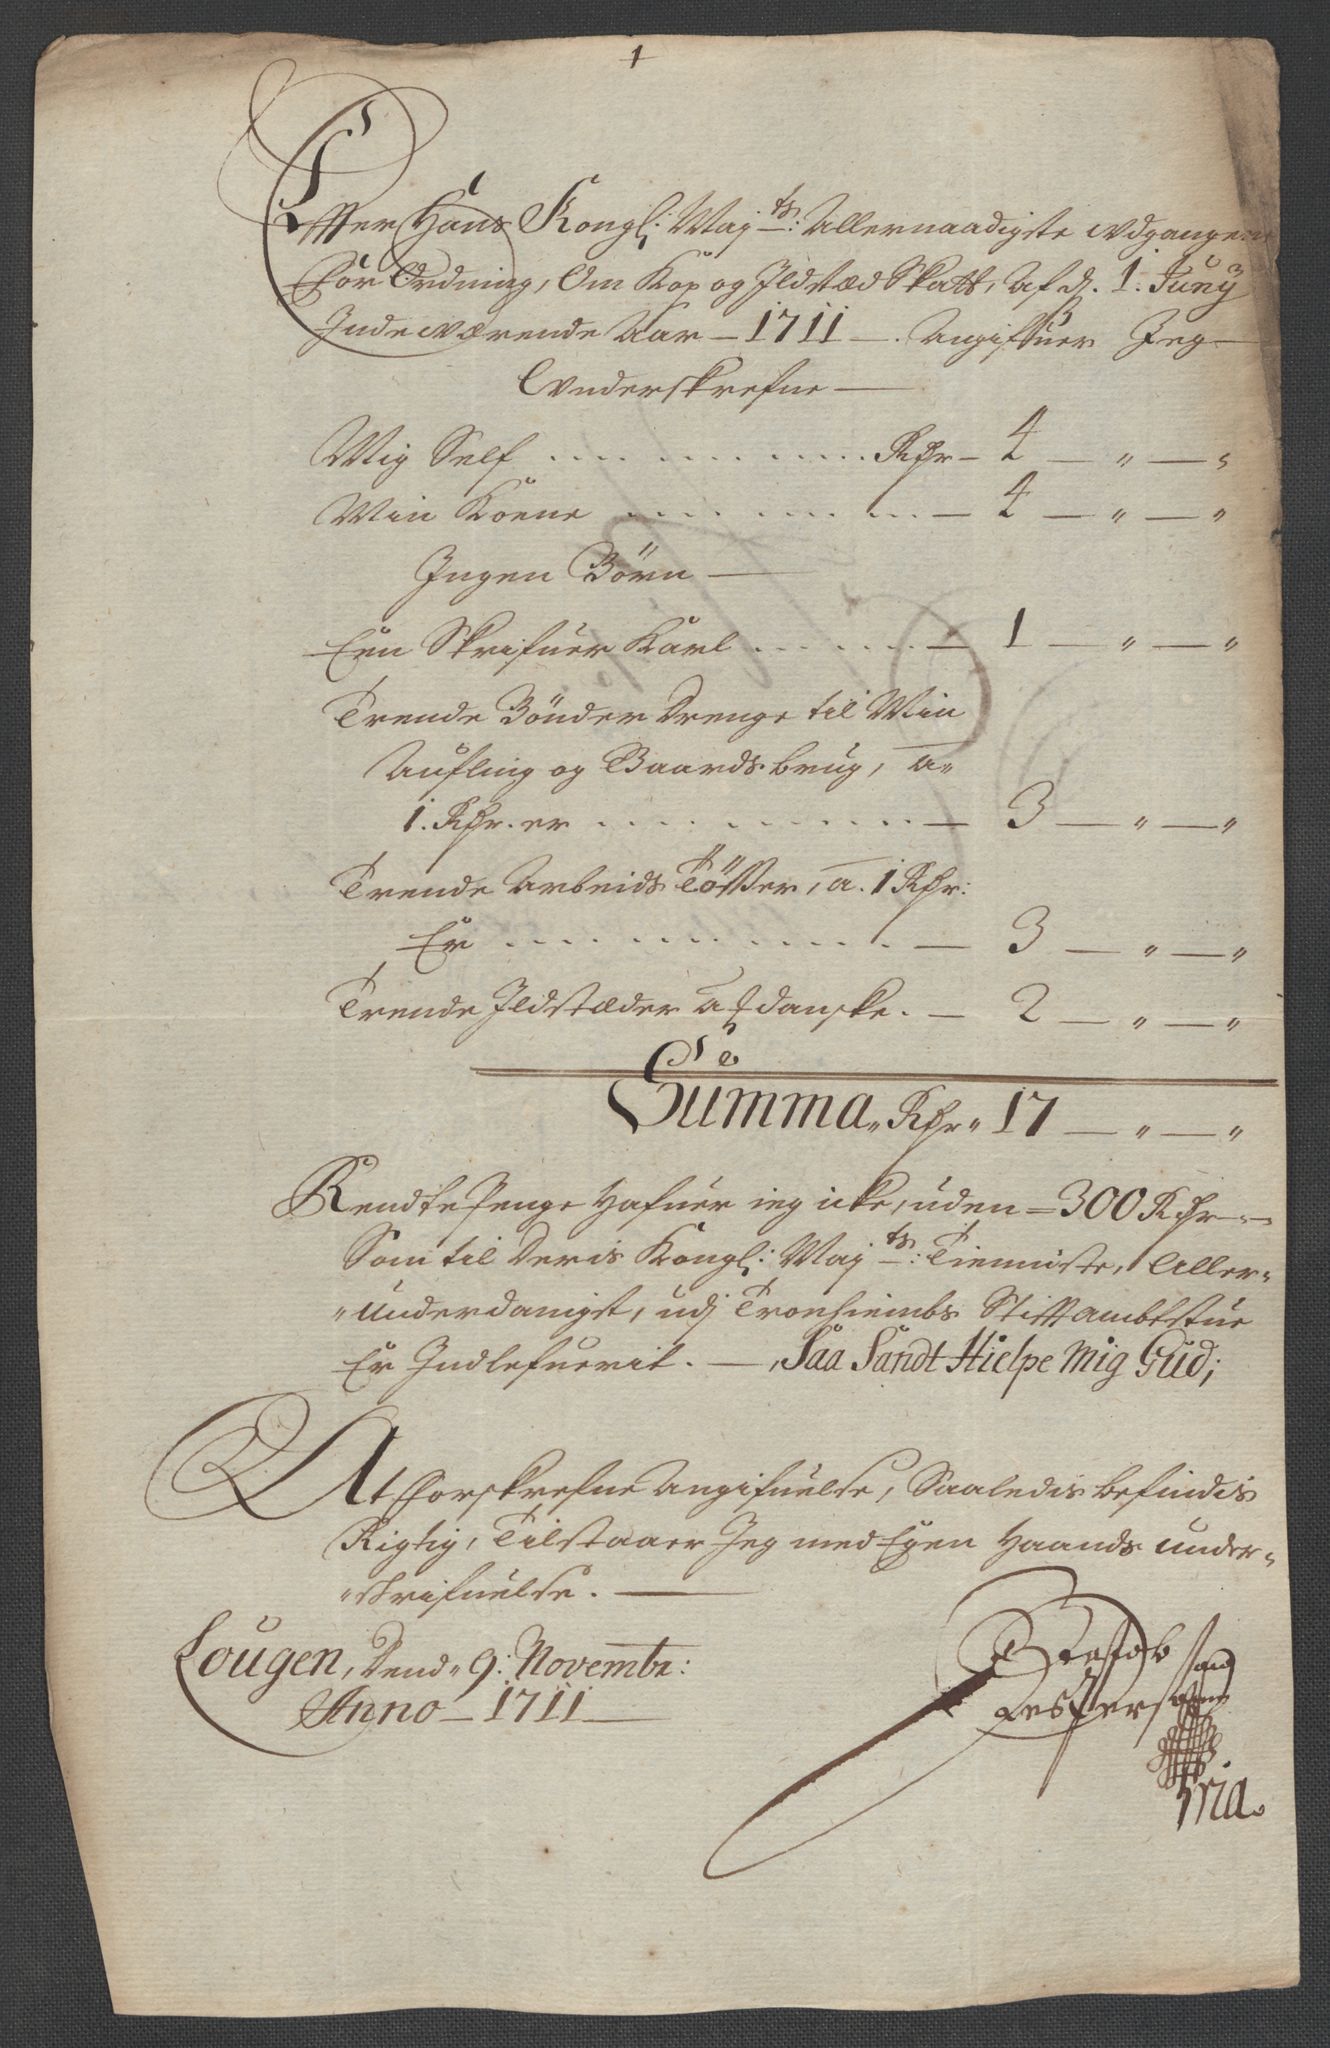 1
Effter Hans Kongl: Maj ts: Allernaadigste wdgangen
For Ordning, Om Kop og Ildstæd Skatt, Af d. 1. Juny
Indeværende Aar – 1711 –. Angiffuer Jeg
Underskrefne
Mig Self ... Rdr – 4 – " – "
Min Kone ... – 4 – " – "
Ingen Börn –
Een Skrifuer Karl ... – 1 – " – "
Trende Bönder Drenge til Min
Aufling og Gaards brug, a
1. Rdr. er ... – 3 – " – "
Trende Arbeids Tösser, a. 1 Rdr:
Er ... – 3 – " – "
Trende Ildstæder af danske. – 2 – " – "
Summa " Rdr " 17 – " – "
Rendte Penge Hafuer ieg icke, uden – 300 Rdr –
Som til Deris Kongl: Maj ts: Tienniste, Aller-
underdanigst, udj Tronhiembs Stifftambtstue
Er Indlefuerit. –, Saa Sandt Hielpe Mig Gud;
At Forskrefne Angifuelse, Saaledis befindis
Rigtig, Tilstaaer Jeg med Egen Haands under-
skrifuelse. –
Lougen, Dend " 9: Novembr:
Anno – 1711 –
Jespersen
Mria.